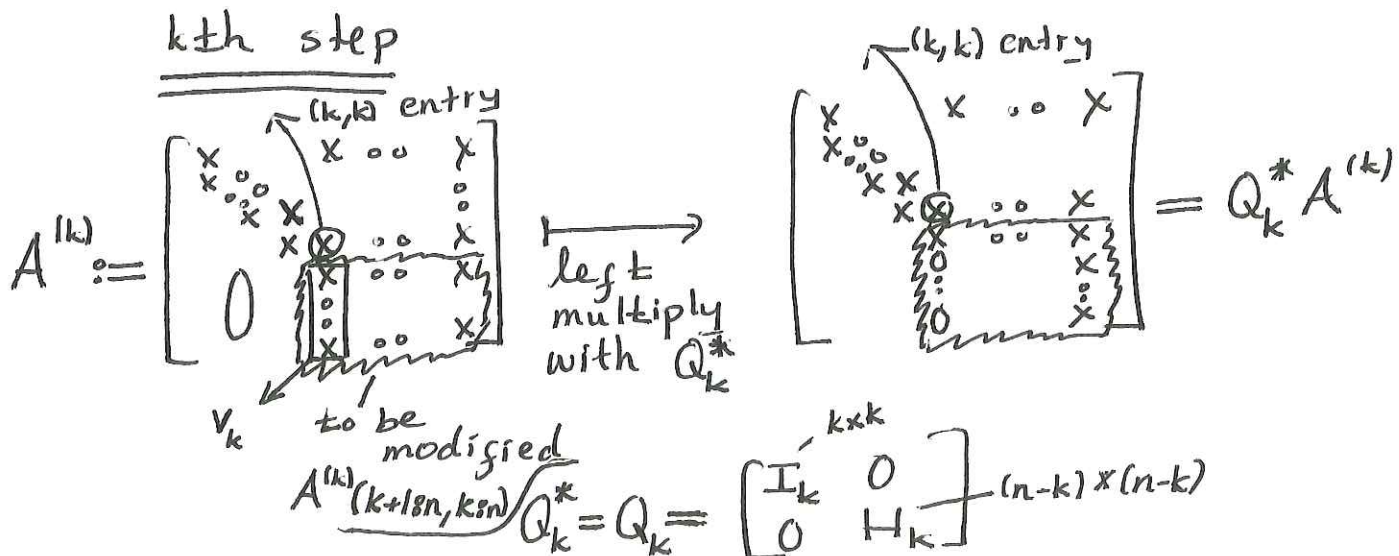 kth step
(k,k) entry
(k,k) entry
A^(k) := [ x x .. x
x ∴ x x :
x x .. x
0 x .. x
:
x .. x ]
left
multiply
with Q_k^*
[ x x .. x
x ∴ x x
x x .. x
x .. x
0 x
: :
0 x ] = Q_k^* A^(k)
v_k
to be
modified
A^(k)(k+1:n, k:n)
Q_k^* = Q_k = [ I_k 0
0 H_k ]
k×k
(n-k) × (n-k)